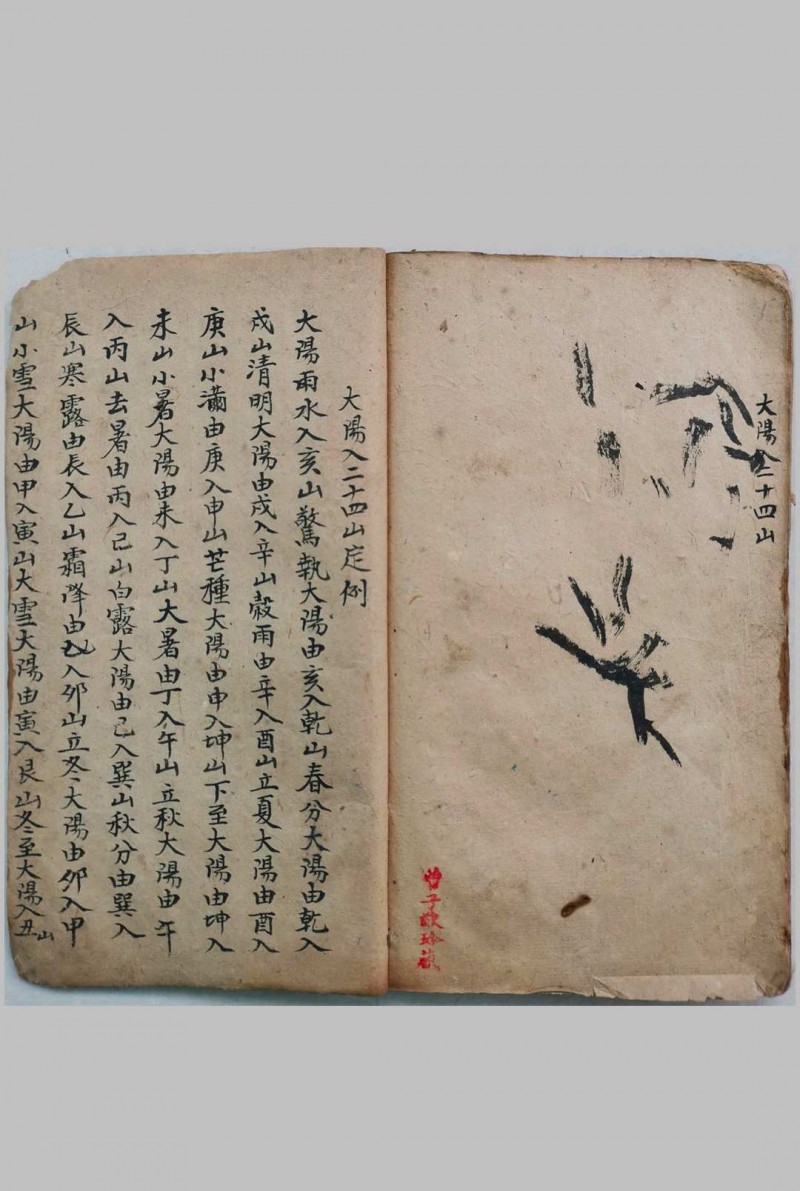 大陽入二十四山
曾子
大陽入二十四山定例
大陽雨水入亥山驚執大陽由亥入乾山春分大陽由乾入
戍山清明大陽由戍入辛山穀雨由辛入酉山立夏大陽由酉入
庚山小滿由庚入申山芒種大陽由申入坤山下至大陽由坤入
未山小暑大陽由未入丁山大暑由丁入午山立秋大陽由午
入丙山去暑由丙入已山白露大陽由已入巽山秋分由巽入
辰山寒露由辰入乙山霜降由乙入夘山立冬大陽由夘入甲
山小雪大陽由甲入寅山大雪大陽由寅入艮山冬至大陽入丑山